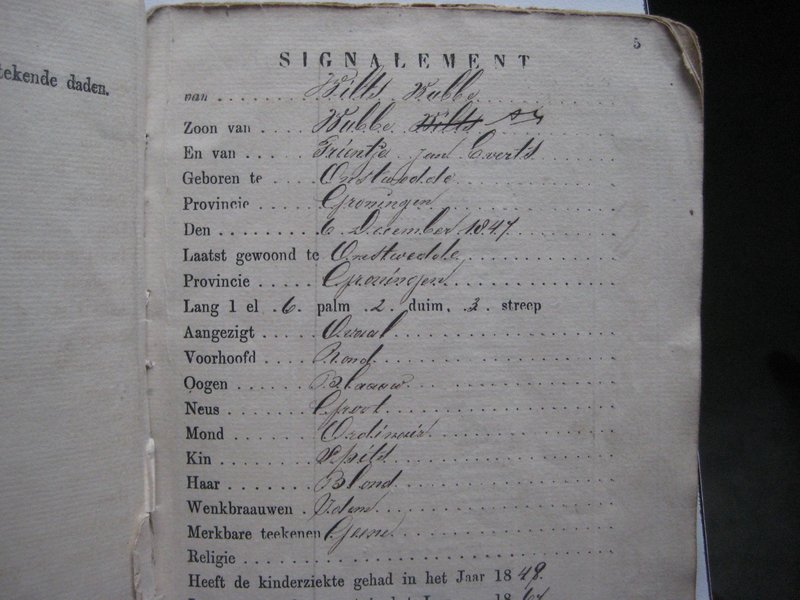 5
tekende daden.
SIGNALEMENT
van Wilts Wubbe
Zoon van Wubbe Wilts
En van Trientje Jan Everts
Geboren te Onstwedde
Provincie Groningen
Den 6 December 1847
Laatst gewoond te Onstwedde
Provincie Groningen
Lang 1 el 6 palm 2 duim 3 streep
Aangezigt Ovaal
Voorhoofd Rond
Oogen Blaauw
Neus Groot
Mond Ordinair
Kin Spits
Haar Blond
Wenkbraauwen Idem
Merkbare teekenen Geene
Religie
Heeft de kinderziekte gehad in het Jaar 1848.